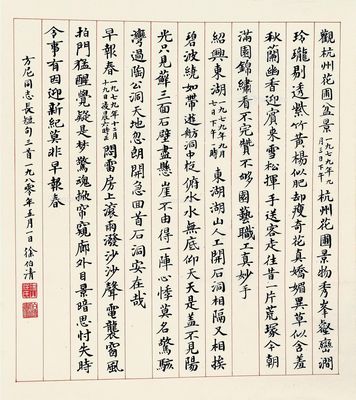 觀杭州花圃盆景 一九七九年九月三日下午 杭州花圃景物秀峯壑巒澗
玲瓏剔透紫竹黄楊似肥却瘦奇花真嬌媚異草似含羞
秋蘭幽香迎賓來雪松揮手送客走往昔一片荒塚今朝
滿園錦繡看不完贊不够園藝職工真妙手
紹興東湖 一九七九年九月七日下午二時 東湖湖山人工開石洞相隔又相挨
碧波繞如帶遊舫洞中棙俯水水無底仰天天是蓋不見陽
光只見蘚三面石壁盡懸崖不由得一陣心悸莫名驚駭
灣過陶公洞天地忽朗開急回首石洞安在哉
早報春 一九七九年十二月十九日凌晨六時 悶雷房上滚雨潑沙沙聲電襲窗風
拍門猛醒覺疑是梦驚魂掀帘窺廊外目景暗思忖失時
令事有因迎新紀莫非早報春
方尼同志長短句三首 一九八零年五月一日 徐伯清